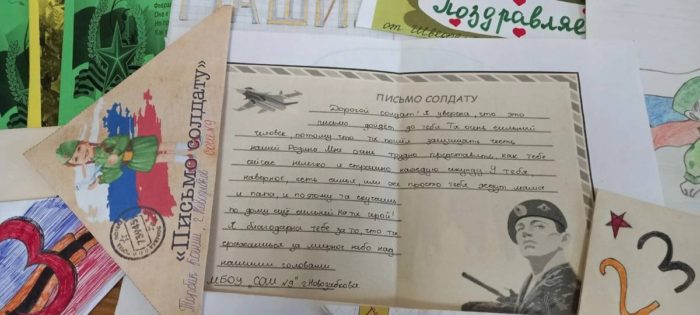 Поздравляе
«Письмо солдату»
ПИСЬМО СОЛДАТУ
Дорогой солдат! Я уверена, что это
письмо дойдёт до тебя. Ты очень сильный
человек, потому что ты пошёл защищать честь
нашей Родины. Мне очень трудно представить, как тебе
сейчас нелегко и страшно каждую секунду. У тебя,
наверное, есть семья, или же просто тебя ждут мама
и папа, и поэтому ты скучаешь
по дому ещё сильней. Но ты герой!
Я благодарна тебе за то, что ты
сражаешься за мирное небо над
нашими головами.
МБОУ "СОШ №9" г. Новозыбкова
23